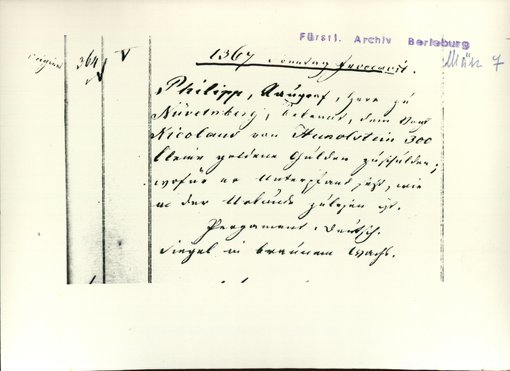 Fürstl. Archiv Berleburg
März 7
364
1367 Sonntag Invocavit.
Philipp, Raugraf, Herr zu
bekennt, dem Herrn
Nicolaus von Hunolstein 300
kleine goldene Gulden zu schulden,
wofür er Unterpfand setzt, wie
in der Urkunde zu lesen ist.
Pergament. Deutsch.
Siegel in braunem Wachs.